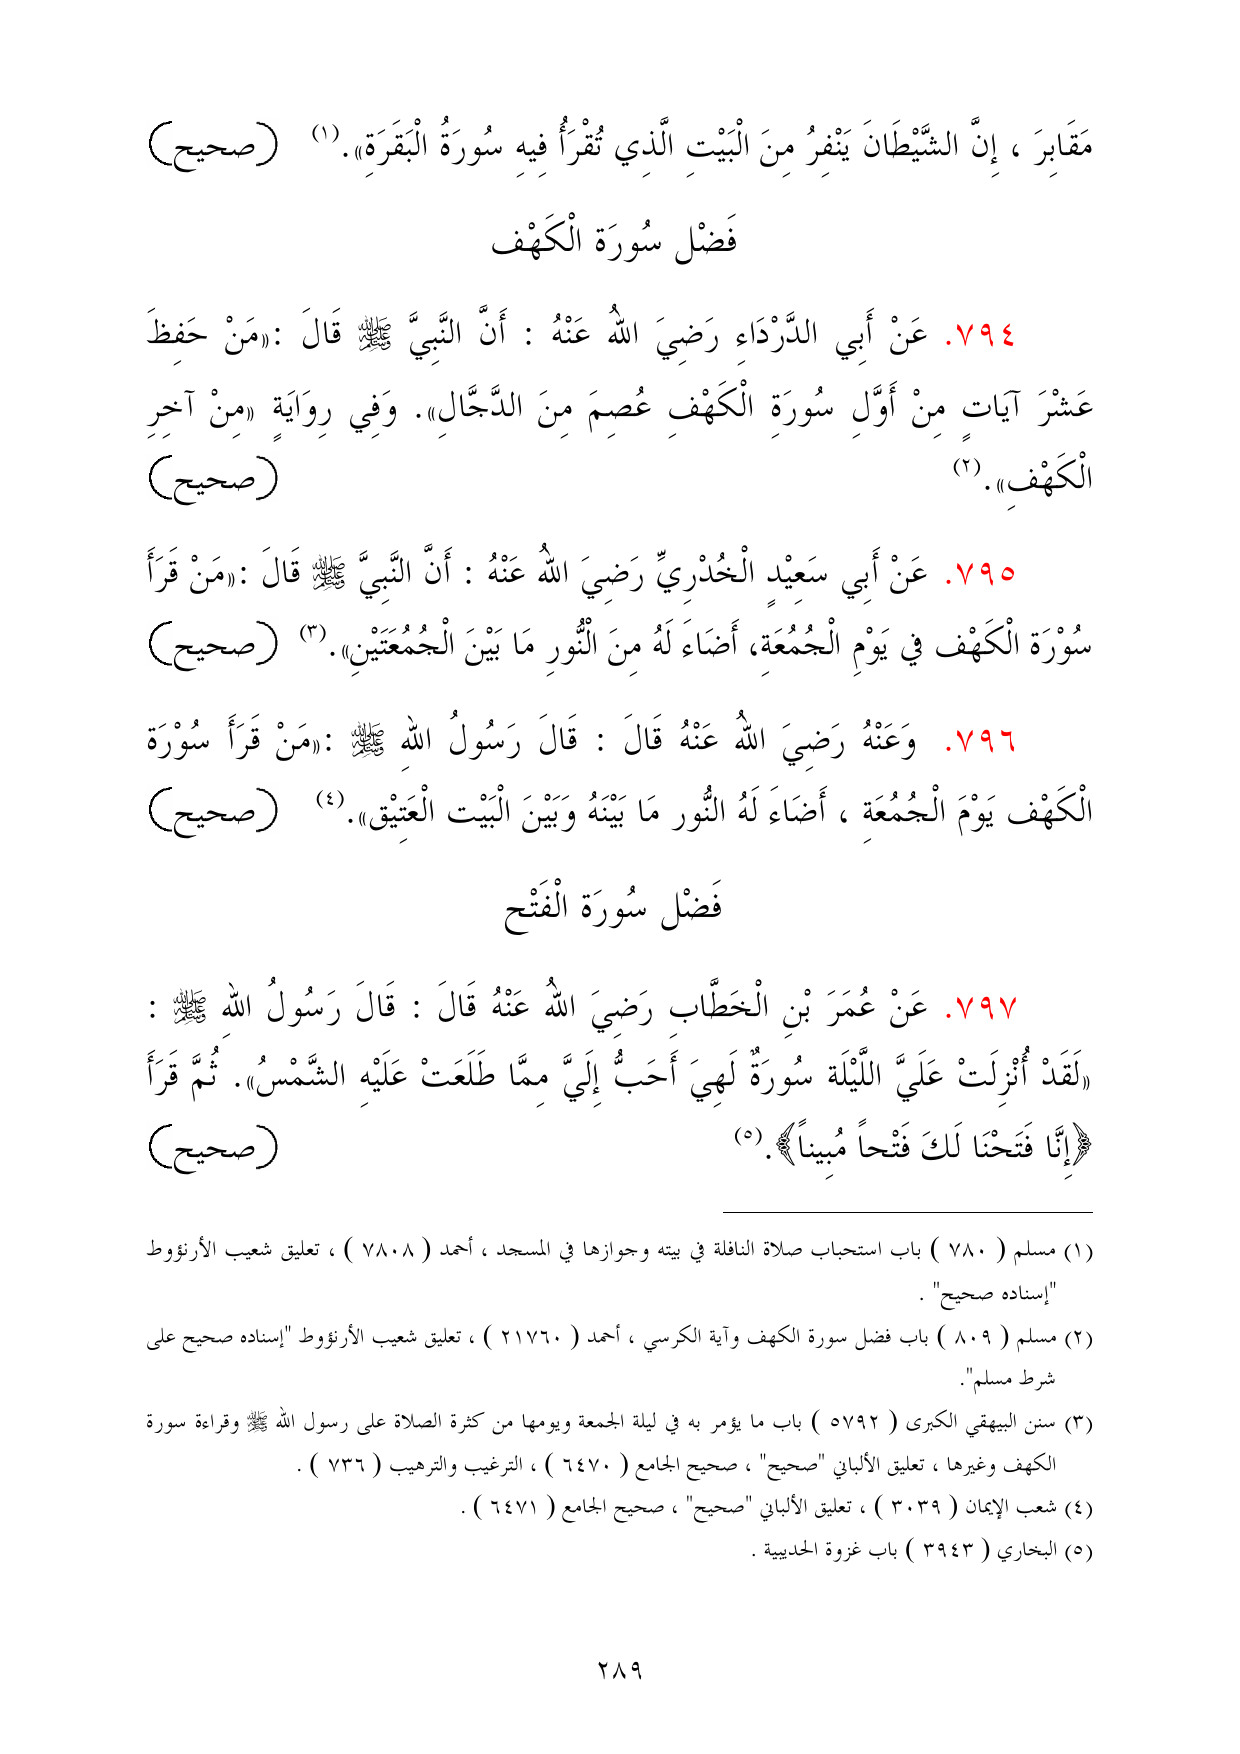 مَقَابِرَ ، إِنَّ الشَّيْطَانَ يَنْفِرُ مِنَ الْبَيْتِ الَّذِي تُقْرَأُ فِيهِ سُورَةُ الْبَقَرَةِ». (١) (صحيح)
فَضْل سُورَة الْكَهْف
٧٩٤. عَنْ أَبِي الدَّرْدَاءِ رَضِيَ اللهُ عَنْهُ : أَنَّ النَّبِيَّ ﷺ قَالَ :«مَنْ حَفِظَ
عَشْرَ آيَاتٍ مِنْ أَوَّلِ سُورَةِ الْكَهْفِ عُصِمَ مِنَ الدَّجَّالِ». وَفِي رِوَايَةٍ «مِنْ آخِرِ
الْكَهْفِ». (٢) (صحيح)
٧٩٥. عَنْ أَبِي سَعِيْدٍ الْخُدْرِيِّ رَضِيَ اللهُ عَنْهُ : أَنَّ النَّبِيَّ ﷺ قَالَ :«مَنْ قَرَأَ
سُوْرَة الْكَهْف فِي يَوْمِ الْجُمُعَةِ، أَضَاءَ لَهُ مِنَ الْنُّورِ مَا بَيْنَ الْجُمُعَتَيْنِ». (٣) (صحيح)
٧٩٦. وَعَنْهُ رَضِيَ اللهُ عَنْهُ قَالَ : قَالَ رَسُولُ اللهِ ﷺ :«مَنْ قَرَأَ سُوْرَة
الْكَهْف يَوْمَ الْجُمُعَةِ ، أَضَاءَ لَهُ النُّور مَا بَيْنَهُ وَبَيْنَ الْبَيْت الْعَتِيْق». (٤) (صحيح)
فَضْل سُورَة الْفَتْح
٧٩٧. عَنْ عُمَرَ بْنِ الْخَطَّابِ رَضِيَ اللهُ عَنْهُ قَالَ : قَالَ رَسُولُ اللهِ ﷺ :
«لَقَدْ أُنْزِلَتْ عَلَيَّ اللَّيْلَة سُورَةٌ لَهِيَ أَحَبُّ إِلَيَّ مِمَّا طَلَعَتْ عَلَيْهِ الشَّمْسُ». ثُمَّ قَرَأَ
﴿إِنَّا فَتَحْنَا لَكَ فَتْحاً مُبِيناً﴾. (٥) (صحيح)
(١) مسلم ( ٧٨٠ ) باب استحباب صلاة النافلة في بيته وجوازها في المسجد ، أحمد ( ٧٨٠٨ ) ، تعليق شعيب الأرنؤوط
"إسناده صحيح" .
(٢) مسلم ( ٨٠٩ ) باب فضل سورة الكهف وآية الكرسي ، أحمد ( ٢١٧٦٠ ) ، تعليق شعيب الأرنؤوط "إسناده صحيح على
شرط مسلم".
(٣) سنن البيهقي الكبرى ( ٥٧٩٢ ) باب ما يؤمر به في ليلة الجمعة ويومها من كثرة الصلاة على رسول الله ﷺ وقراءة سورة
الكهف وغيرها ، تعليق الألباني "صحيح" ، صحيح الجامع ( ٦٤٧٠ ) ، الترغيب والترهيب ( ٧٣٦ ) .
(٤) شعب الإيمان ( ٣٠٣٩ ) ، تعليق الألباني "صحيح" ، صحيح الجامع ( ٦٤٧١ ) .
(٥) البخاري ( ٣٩٤٣ ) باب غزوة الحديبية .
٢٨٩